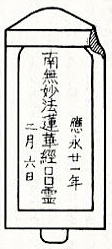 應永廿一年
南無妙法蓮華經口口霊
二月六日